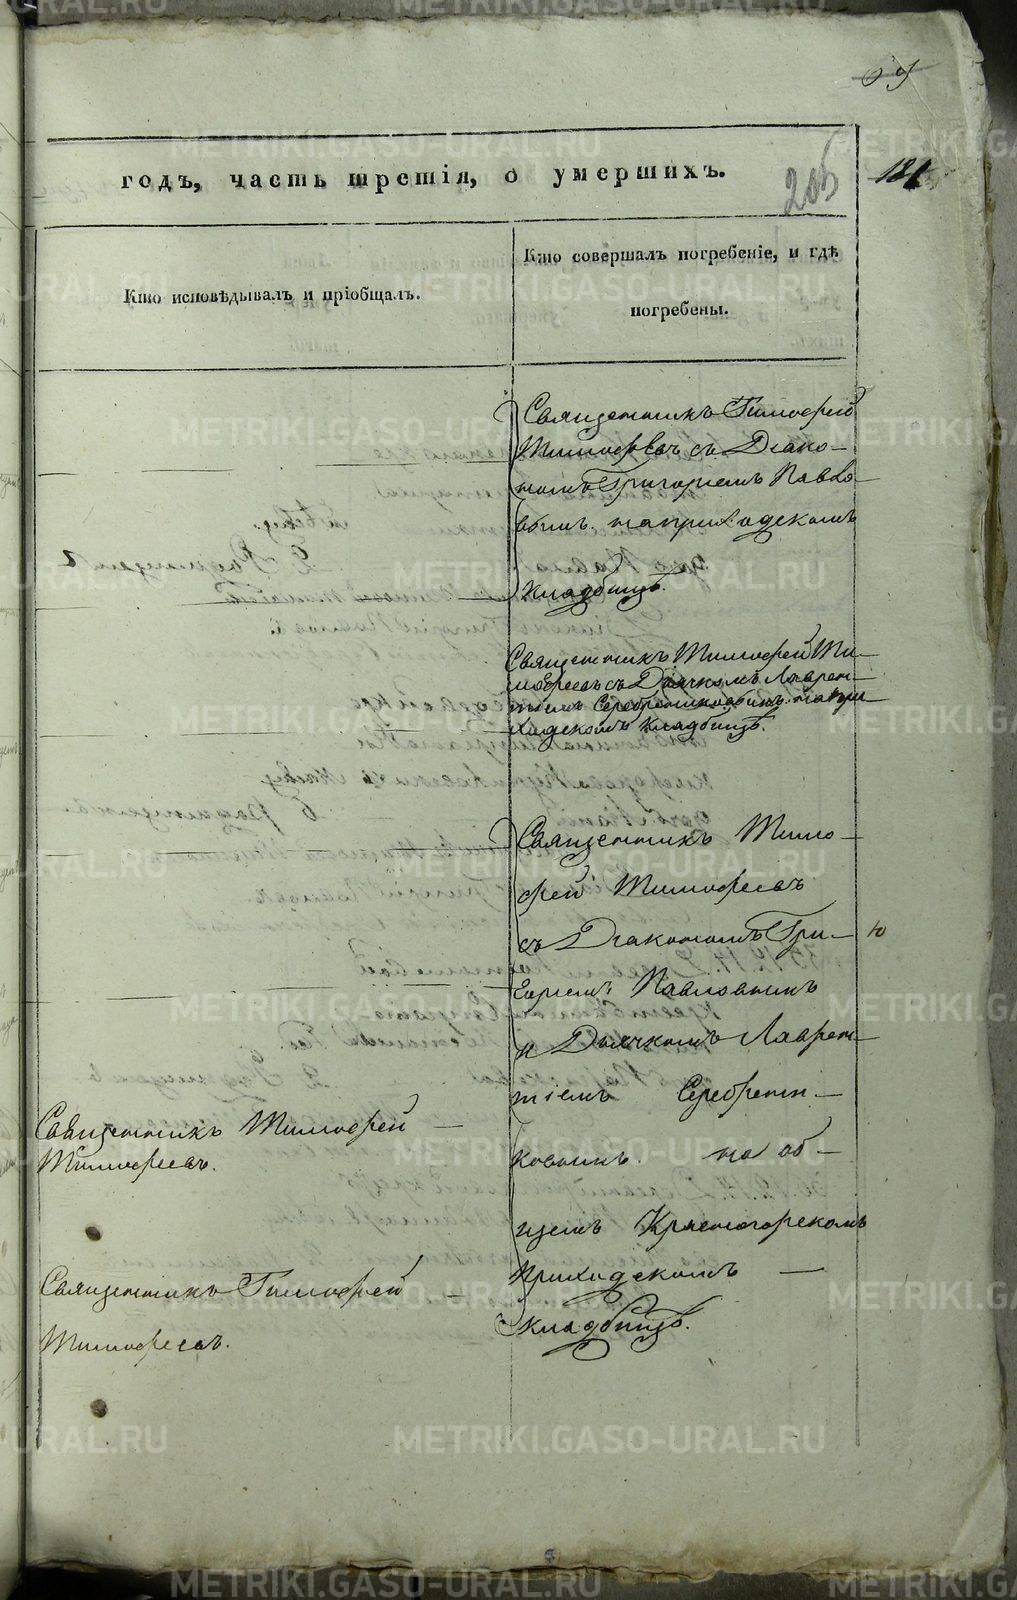 годъ, часть третія, о умершихъ.
205
Кто исповѣдывалъ и пріобщалъ.
Кто совершалъ погребеніе, и гдѣ
погребены.
Священникъ Тимофей
Тимофѣевъ съ Діако-
номъ Григоріемъ Павло-
вымъ на приходскомъ
кладбищѣ.
Священникъ Тимофей Ти-
мофеевъ съ Дьячкомъ Лаврен-
тіемъ Серебрениковымъ на при-
ходскомъ кладбищѣ.
Священникъ Тимо-
фей Тимофеевъ
съ Діакономъ Гри-
горіемъ Павловымъ
и Дьячкомъ Лаврен-
тіемъ Серебрени-
ковымъ на об-
щемъ Красногорскомъ
приходскомъ
кладбищѣ.
Священникъ Тимофей
Тимофеевъ.
Священникъ Тимофей
Тимофеевъ.
METRIKI.GASO-URAL.RU